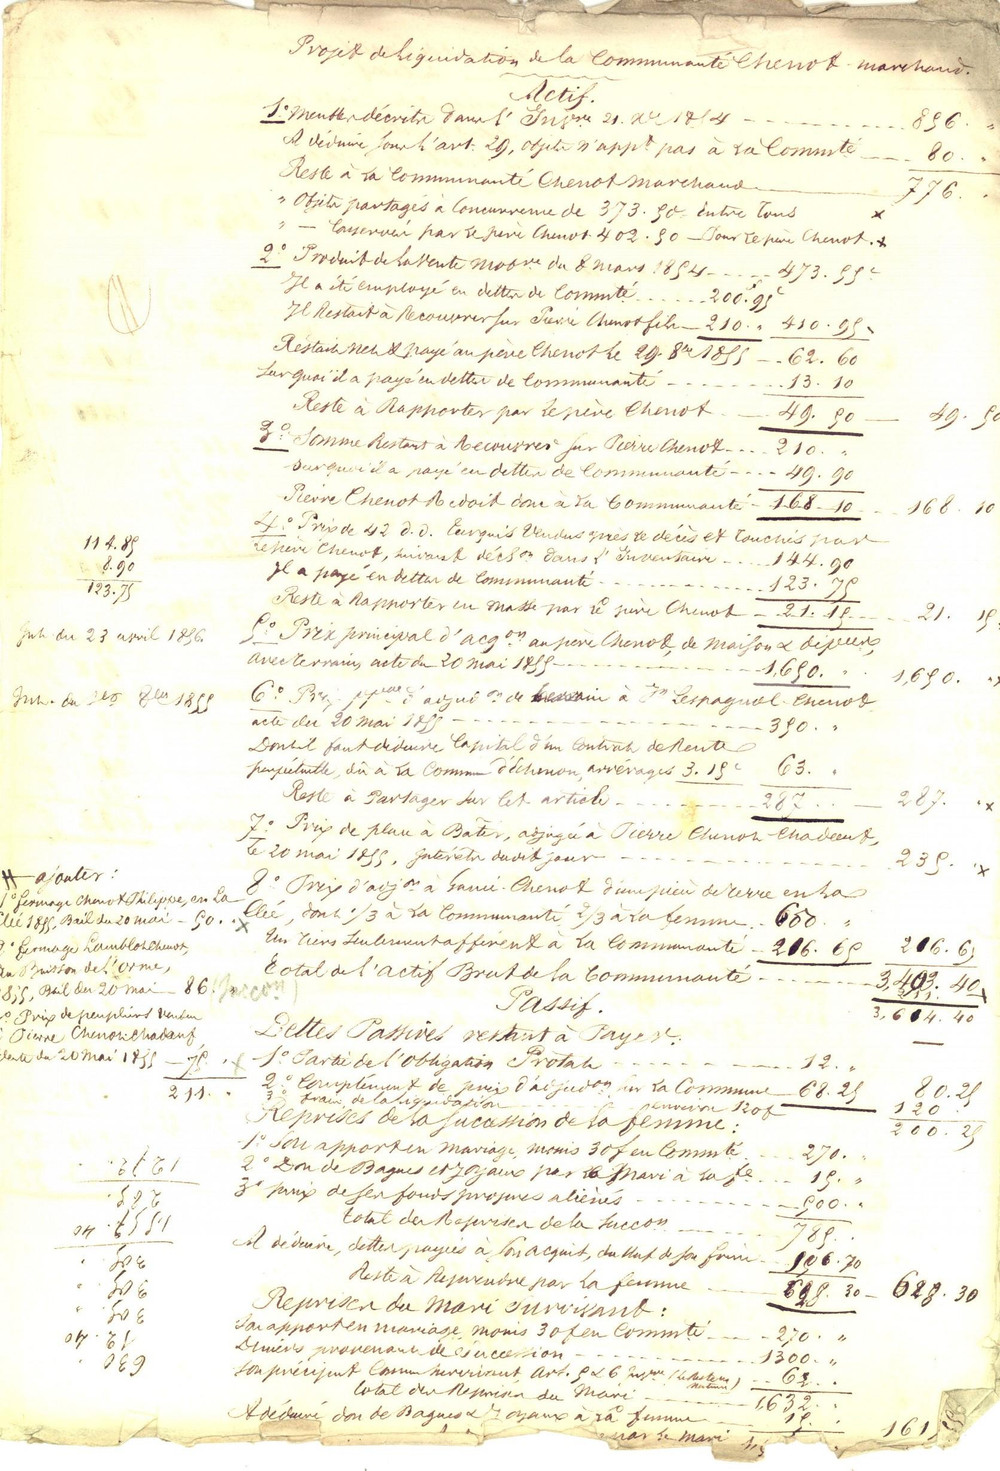 Projet de liquidation de la Communauté Chenot-marchand.
Actif.
1º Meubles décrits dans l' 21. Xbre 1854 896. "
A déduire pour l'art. 29, objets n'appt pas à la Commté 80. "
Reste à la Communauté Chenot Marchand 776. "
" Objets partagés à Concurrence de 373.50 Entre tous x
" — Conservés par le père Chenot 402.50 — Pour le père Chenot. x
2º Produit de la Vente du 8 mars 1854 473.55c
Il a été employé en dettes de Commté 200.95c
Il Restait à Recouvrer sur Pierre Chenot fils 210. " 410.95
Restait Net & payé au père Chenot le 29. 8bre 1855 62.60
Sur quoi il a payé en dettes de Communauté 13.10
Reste à Rapporter par le père Chenot 49.50 — 49.50
3º Somme Restant à Recouvrer sur Pierre Chenot 210. "
Sur quoi il a payé en dettes de Communauté 49.90
Pierre Chenot Redoit donc à la Communauté 168.10 168.10
4º Prix de 42 d.d. Vendus près le décès et touchés par
le père Chenot, suivant décl.on dans l'Inventaire 144.90
Il a payé en dettes de Communauté 123.75
Reste à Rapporter en masse par le père Chenot 21.15 21.15
114.85
8.90
123.75
du 23 avril 1856
5º Prix principal d'acq.on au père Chenot, de Maison &
avec terrain, acte du 20 mai 1855 1,650. " 1,650. "x
du 8bre 1855
6º de à Lespagnol-Chenot
acte du 20 mai 1855 350. "
Dont il faut déduire Capital d'un Contrat de Rente
perpétuelle, dû à la Commune d'échenon, arrérages 3.15c 63. "
Reste à Partager sur cet article 287 287. "x
7º Prix de place à Bâtir, adjugé à Pierre Chenot-Chadeuf,
le 20 mai 1855, Intérêts dudit jour 235. "x
8º Prix d'adj.on à Chenot d'une pièce de terre en la
Clée, dont 1/3 à la Communauté 2/3 à la femme 650 "
Un tiers seulement afférent à la Communauté 216.65 216.65
Total de l'actif Brut de la Communauté 3,403.40
3,614.40
ajouter:
1º fermage Chenot Philippe, en la
Clée 1855, Bail du 20 mai — 50. " x
fermage Chenot,
Buisson de l'Orme,
1855, Bail du 20 mai — 86.
Prix de peupliers vendus
Pierre Chenot Chadeuf
vente du 20 Mai 1855 — 75. " x
211. "
Passif.
Dettes Passives restant à Payer:
1º Partie de l'obligation 12. "
2º Complément de prix d'adjud.on sur la Commune 68.25 80.25
3º frais de la liquidation environ 120f 120
200.25
Reprises de la Succession de la femme:
1º Son apport en mariage, moins 30f en Commté 270. "
2º Don de Bagues et Joyaux par le Mari à la fe 15. "
3º prix de ses fonds propres aliénés 500. "
Total des Reprises de la Succon 785. "
A déduire, dettes payées à son acquit, du chef de son frère 156.70
Reste à Reprendre par la femme 628.30 — 628.30
1212.
285
1.557.40
305
305
305
12.40
630
Reprises du Mari Survivant:
Son apport en mariage, moins 30f en Commté 270. "
Deniers provenant de Succession 1300. "
Son préciput Comme survivant, Art. 5 & 6 62. "
Total des Reprises du Mari 1,632. "
A déduire don de Bagues & Joyaux à la femme 15. "
par le mari 161